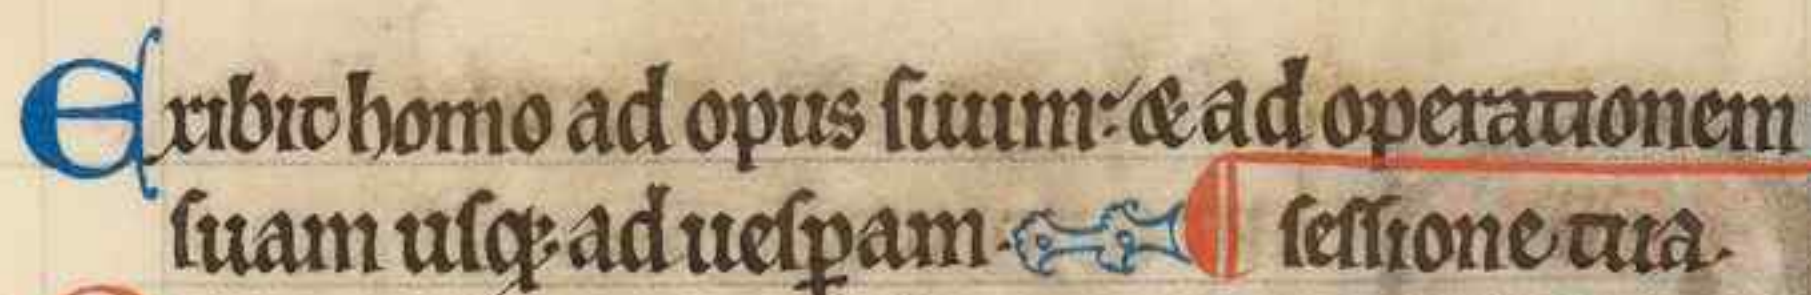 Exibit homo ad opus suum: & ad operationem
suam usq; ad uesꝑam. sessione tua.